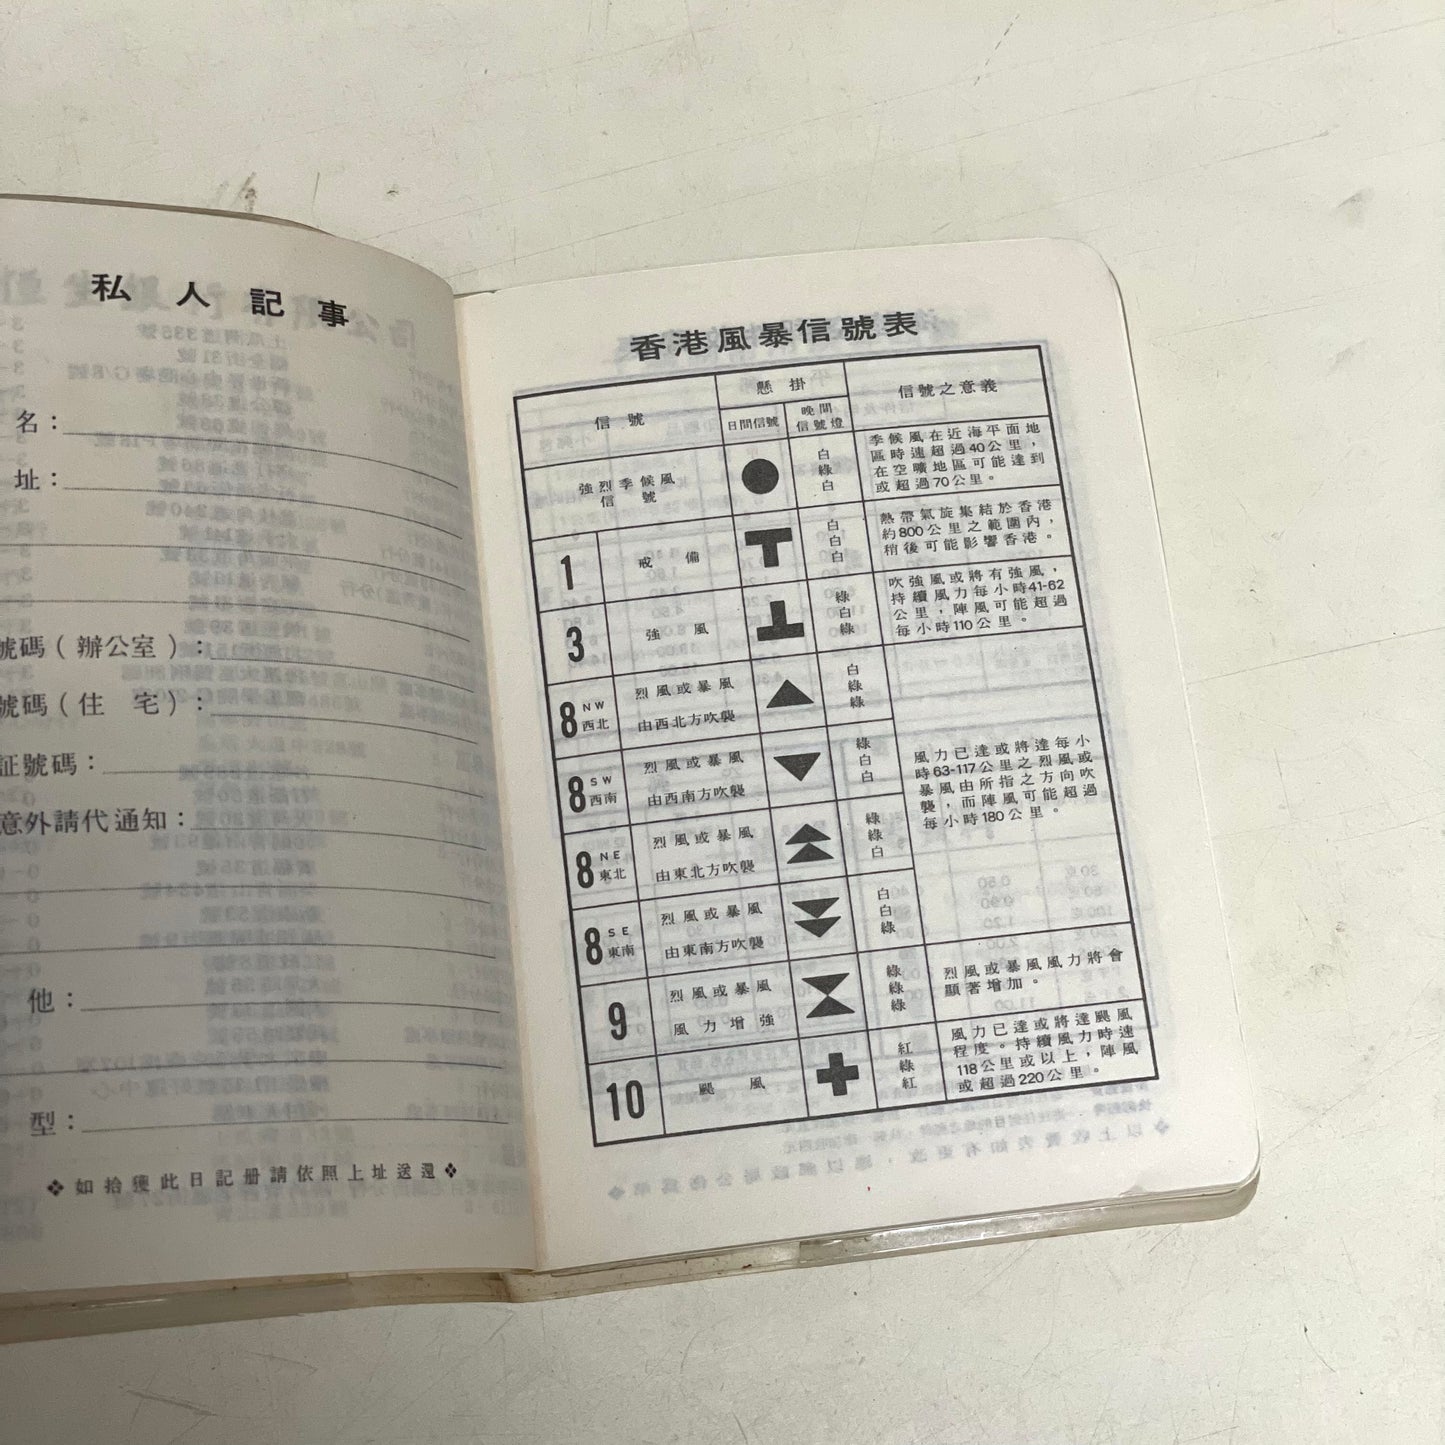 私人記事
名：
址：
號碼（辦公室）：
號碼（住　宅）：
証號碼：
意外請代通知：
他：
型：
❖如拾獲此日記册請依照上址送還❖
香港風暴信號表
信號
懸掛
信號之意義
日間信號
晚間
信號燈
強烈季候風
信號
白
綠
白
季候風在近海平面地
區時速超過40公里，
在空曠地區可能達到
或超過70公里。
1
戒備
白
白
白
熱帶氣旋集結於香港
約800公里之範圍內，
稍後可能影響香港。
3
強風
綠
白
綠
吹強風或將有強風，
持續風力每小時41-62
公里，陣風可能超過
每小時110公里。
8 NW
西北
烈風或暴風
由西北方吹襲
白
綠
綠
8 SW
西南
烈風或暴風
由西南方吹襲
綠
白
白
風力已達或將達每小
時63-117公里之烈風或
暴風由所指之方向吹
襲，而陣風可能超過
每小時180公里。
8 NE
東北
烈風或暴風
由東北方吹襲
綠
綠
白
8 SE
東南
烈風或暴風
由東南方吹襲
白
白
綠
9
烈風或暴風
風力增強
綠
綠
綠
烈風或暴風風力將會
顯著增加。
10
颶風
紅
綠
紅
風力已達或將達颶風
程度。持續風力時速
118公里或以上，陣風
或超過220公里。